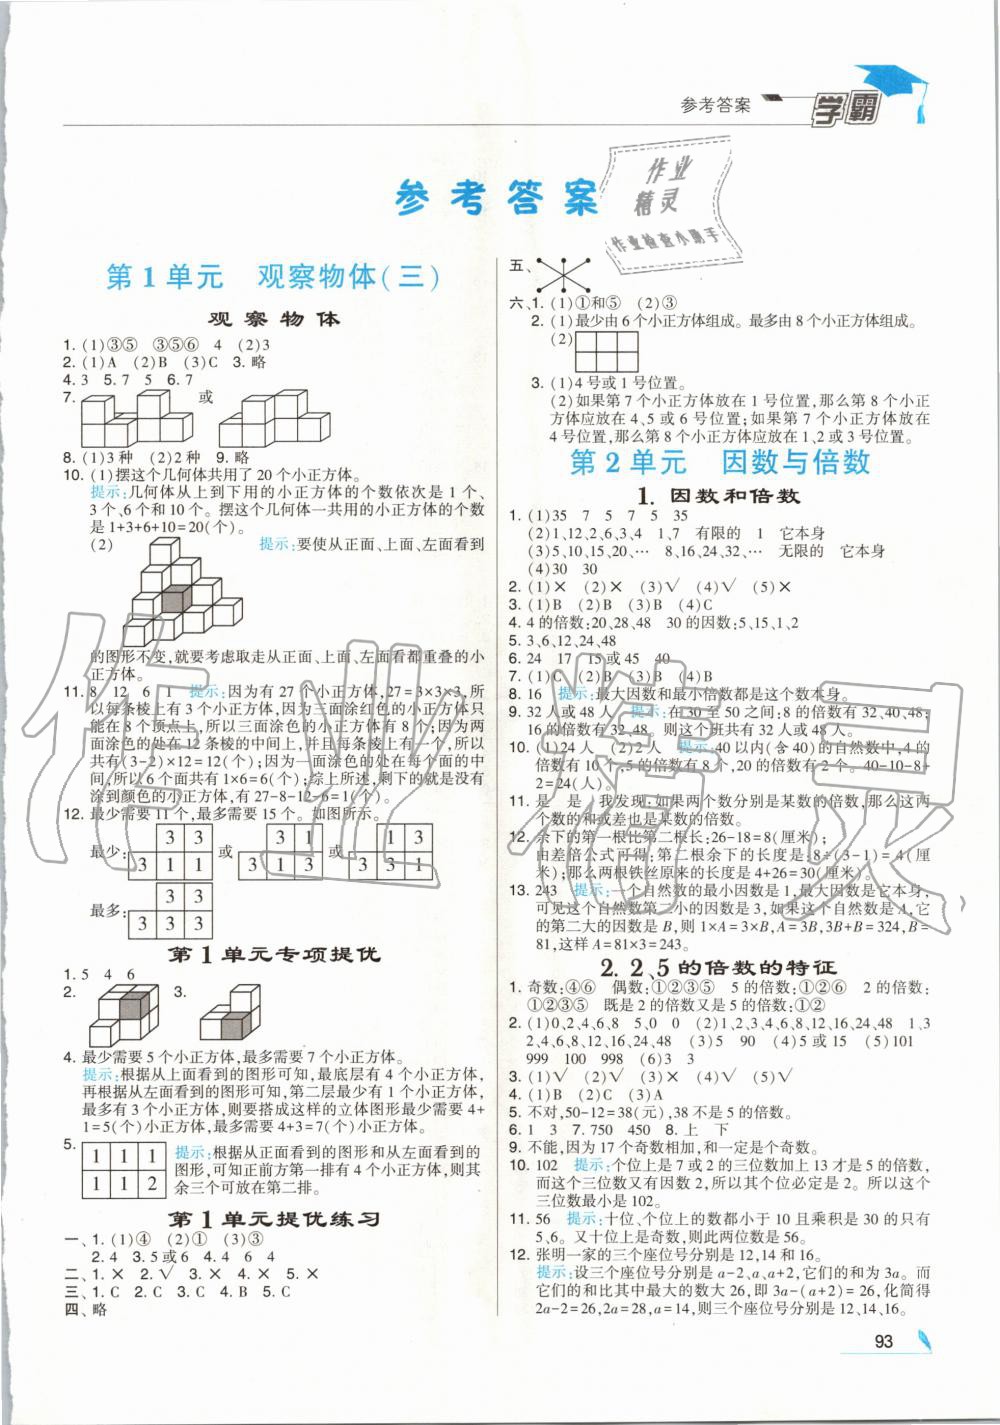 参考答案 学霸
作业
精灵
作业检查小助手
参考答案
第1单元 观察物体(三)
观察物体
1. (1)③⑤ ③⑤⑥ 4 (2)3
2. (1)A (2)B (3)C 3. 略
4. 3 5. 7 5 6. 7
7. 或
8. (1)3种 (2)2种 9. 略
10. (1)摆这个几何体共用了20个小正方体。
提示:几何体从上到下用的小正方体的个数依次是1个、
3个、6个和10个。摆这个几何体一共用的小正方体的个数
是1+3+6+10=20(个)。
(2) 提示:要使从正面、上面、左面看到
的图形不变,就要考虑取走从正面、上面、左面看都重叠的小
正方体。
11. 8 12 6 1 提示:因为有27个小正方体,27=3×3×3,所
以每条棱上有3个小正方体,因为三面涂色的小正方体只
能在8个顶点上,所以三面涂色的小正方体有8个;因为两
面涂色的处在12条棱的中间上,并且每条棱上有一个,所以
共有(3-2)×12=12(个);因为一面涂色的处在每个面的中
间,所以6个面共有1×6=6(个);综上所述,剩下的就是没有
涂到颜色的小正方体,有27-8-12-6=1(个)。
12. 最少需要11个,最多需要15个。如图所示。
最少: 3 3 或 3 1 或 1 3
3 1 1 3 1 3 3 3 1
最多: 3 3
3 3 3
第1单元专项提优
1. 5 4 6
2. 3.
4. 最少需要5个小正方体,最多需要7个小正方体。
提示:根据从上面看到的图形可知,最底层有4个小正方体,
再根据从左面看到的图形可知,第二层最少有1个小正方体,
最多有3个小正方体,则要搭成这样的立体图形最少需要4+
1=5(个)小正方体,最多需要4+3=7(个)小正方体。
5. 1 1 1
1 1 2
提示:根据从正面看到的图形和从左面看到的
图形,可知正前方第一排有4个小正方体,则其
余三个可放在第二排。
第1单元提优练习
一、1. (1)④ (2)① (3)③
2. 4 3. 5或6 4. 4 6 4
二、1. × 2. √ 3. × 4. × 5. ×
三、1. C 2. C 3. C 4. B 5. C
四、略
五、
六、1. (1)①和⑤ (2)③
2. (1)最少由6个小正方体组成。最多由8个小正方体组成。
(2)
3. (1)4号或1号位置。
(2)如果第7个小正方体放在1号位置,那么第8个小正
方体应放在4、5或6号位置;如果第7个小正方体放在
4号位置,那么第8个小正方体应放在1、2或3号位置。
第2单元 因数与倍数
1. 因数和倍数
1. (1)35 7 5 7 5 35
(2)1,12,2,6,3,4 1,7 有限的 1 它本身
(3)5,10,15,20,… 8,16,24,32,… 无限的 它本身
(4)30 30
2. (1)× (2)× (3)√ (4)√ (5)×
3. (1)B (2)B (3)B (4)C
4. 4的倍数:20、28、48 30的因数:5、15、1、2
5. 3、6、12、24、48
6. 24 17 15或45 40
7. (1)C (2)B (3)B (4)B
8. 16 提示:最大因数和最小倍数都是这个数本身。
9. 32人或48人 提示:在30至50之间:8的倍数有32、40、48;
16的倍数有32、48。则这个班共有32人或48人。
10. (1)24人 (2)2人 提示:40以内(含40)的自然数中,4的
倍数有10个,5的倍数有8个,20的倍数有2个。40-10-8+
2=24(人)。
11. 是 是 我发现:如果两个数分别是某数的倍数,那么这两
个数的和或差也是某数的倍数。
12. 余下的第一根比第二根长:26-18=8(厘米);
由差倍公式可得:第二根余下的长度是:8÷(3-1)=4(厘
米);那么两根铁丝原来的长是4+26=30(厘米)。
13. 243 提示:一个自然数的最小因数是1,最大因数是它本身,
可见这个自然数第二小的因数是3,如果这个自然数是A,它
的第二大的因数是B,则1×A=3×B,A=3B,3B+B=324,B=
81,这样A=81×3=243。
2. 2、5的倍数的特征
1. 奇数:④⑥ 偶数:①②③⑤ 5的倍数:①②⑥ 2的倍数:
①②③⑤ 既是2的倍数又是5的倍数:①②
2. (1)0、2、4、6、8 5、0 0 (2)1、2、3、4、6、8、12、16、24、48 1、3
2、4、6、8、12、16、24、48 (3)5 90 (4)5或15 (5)101
999 100 998 (6)3 3
3. (1)√ (2)√ (3)× (4)√ (5)√
4. (1)B (2)C (3)C (4)A
5. 不对,50-12=38(元),38不是5的倍数。
6. 1 3 7. 750 450 8. 上 下
9. 不能,因为17个奇数相加,和一定是个奇数。
10. 102 提示:个位上是7或2的三位数加上13才是5的倍数,
而这个三位数又有因数2,所以其个位必定是2。所以这个
三位数最小是102。
11. 56 提示:十位、个位上的数都小于10且乘积是30的只有
5、6。又十位上是奇数,则此两位数是56。
12. 张明一家的三个座位号分别是12、14和16。
提示:设三个座位号分别是a-2、a、a+2,它们的和为3a。而
它们的和比其中最大的数大26,即3a-(a+2)=26,化简得
2a-2=26,2a=28,a=14,则三个座位号分别是12、14、16。
93
作业精灵